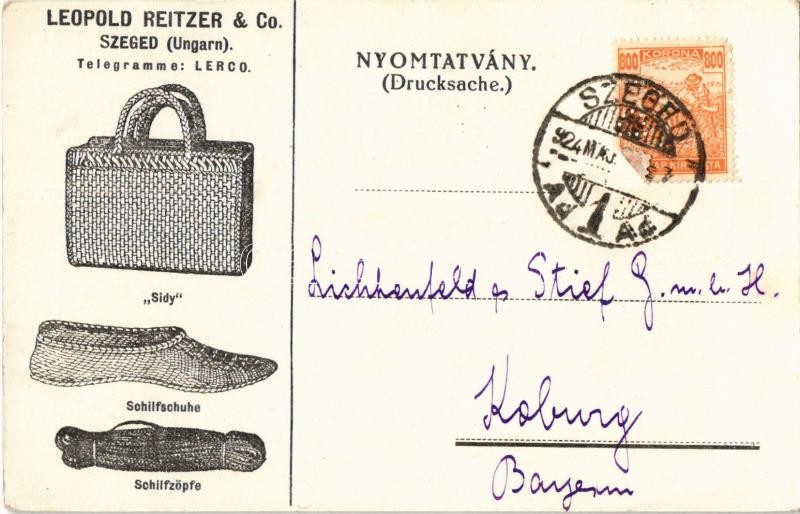 LEOPOLD REITZER & Co.
SZEGED (Ungarn).
Telegramme: LERCO.
„Sidy"
Schilfschuhe
Schilfzöpfe
NYOMTATVÁNY.
(Drucksache.)
800 KORONA 800
SZEGED
924 MÁJ.
1
Lichtenfeld es Stief G.m.b.H.
Koburg
Bayern